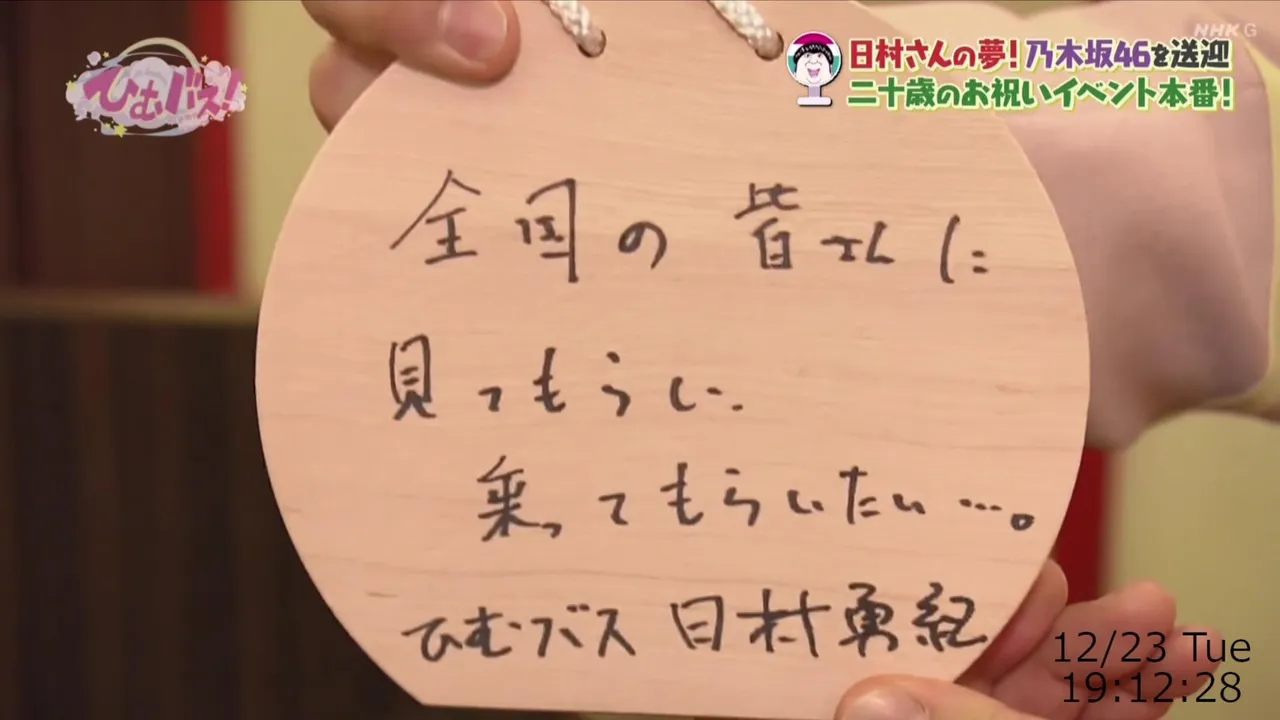 ひむバス!
NHK G
日村さんの夢!乃木坂46を送迎
二十歳のお祝いイベント本番!
全国の皆さんに
見てもらい.
乗ってもらいたい…。
ひむバス 日村勇紀
12/23 Tue
19:12:28